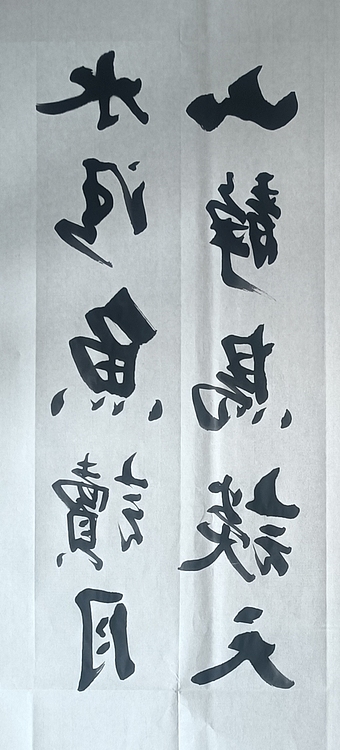 水清魚讀月
山靜鳥談天